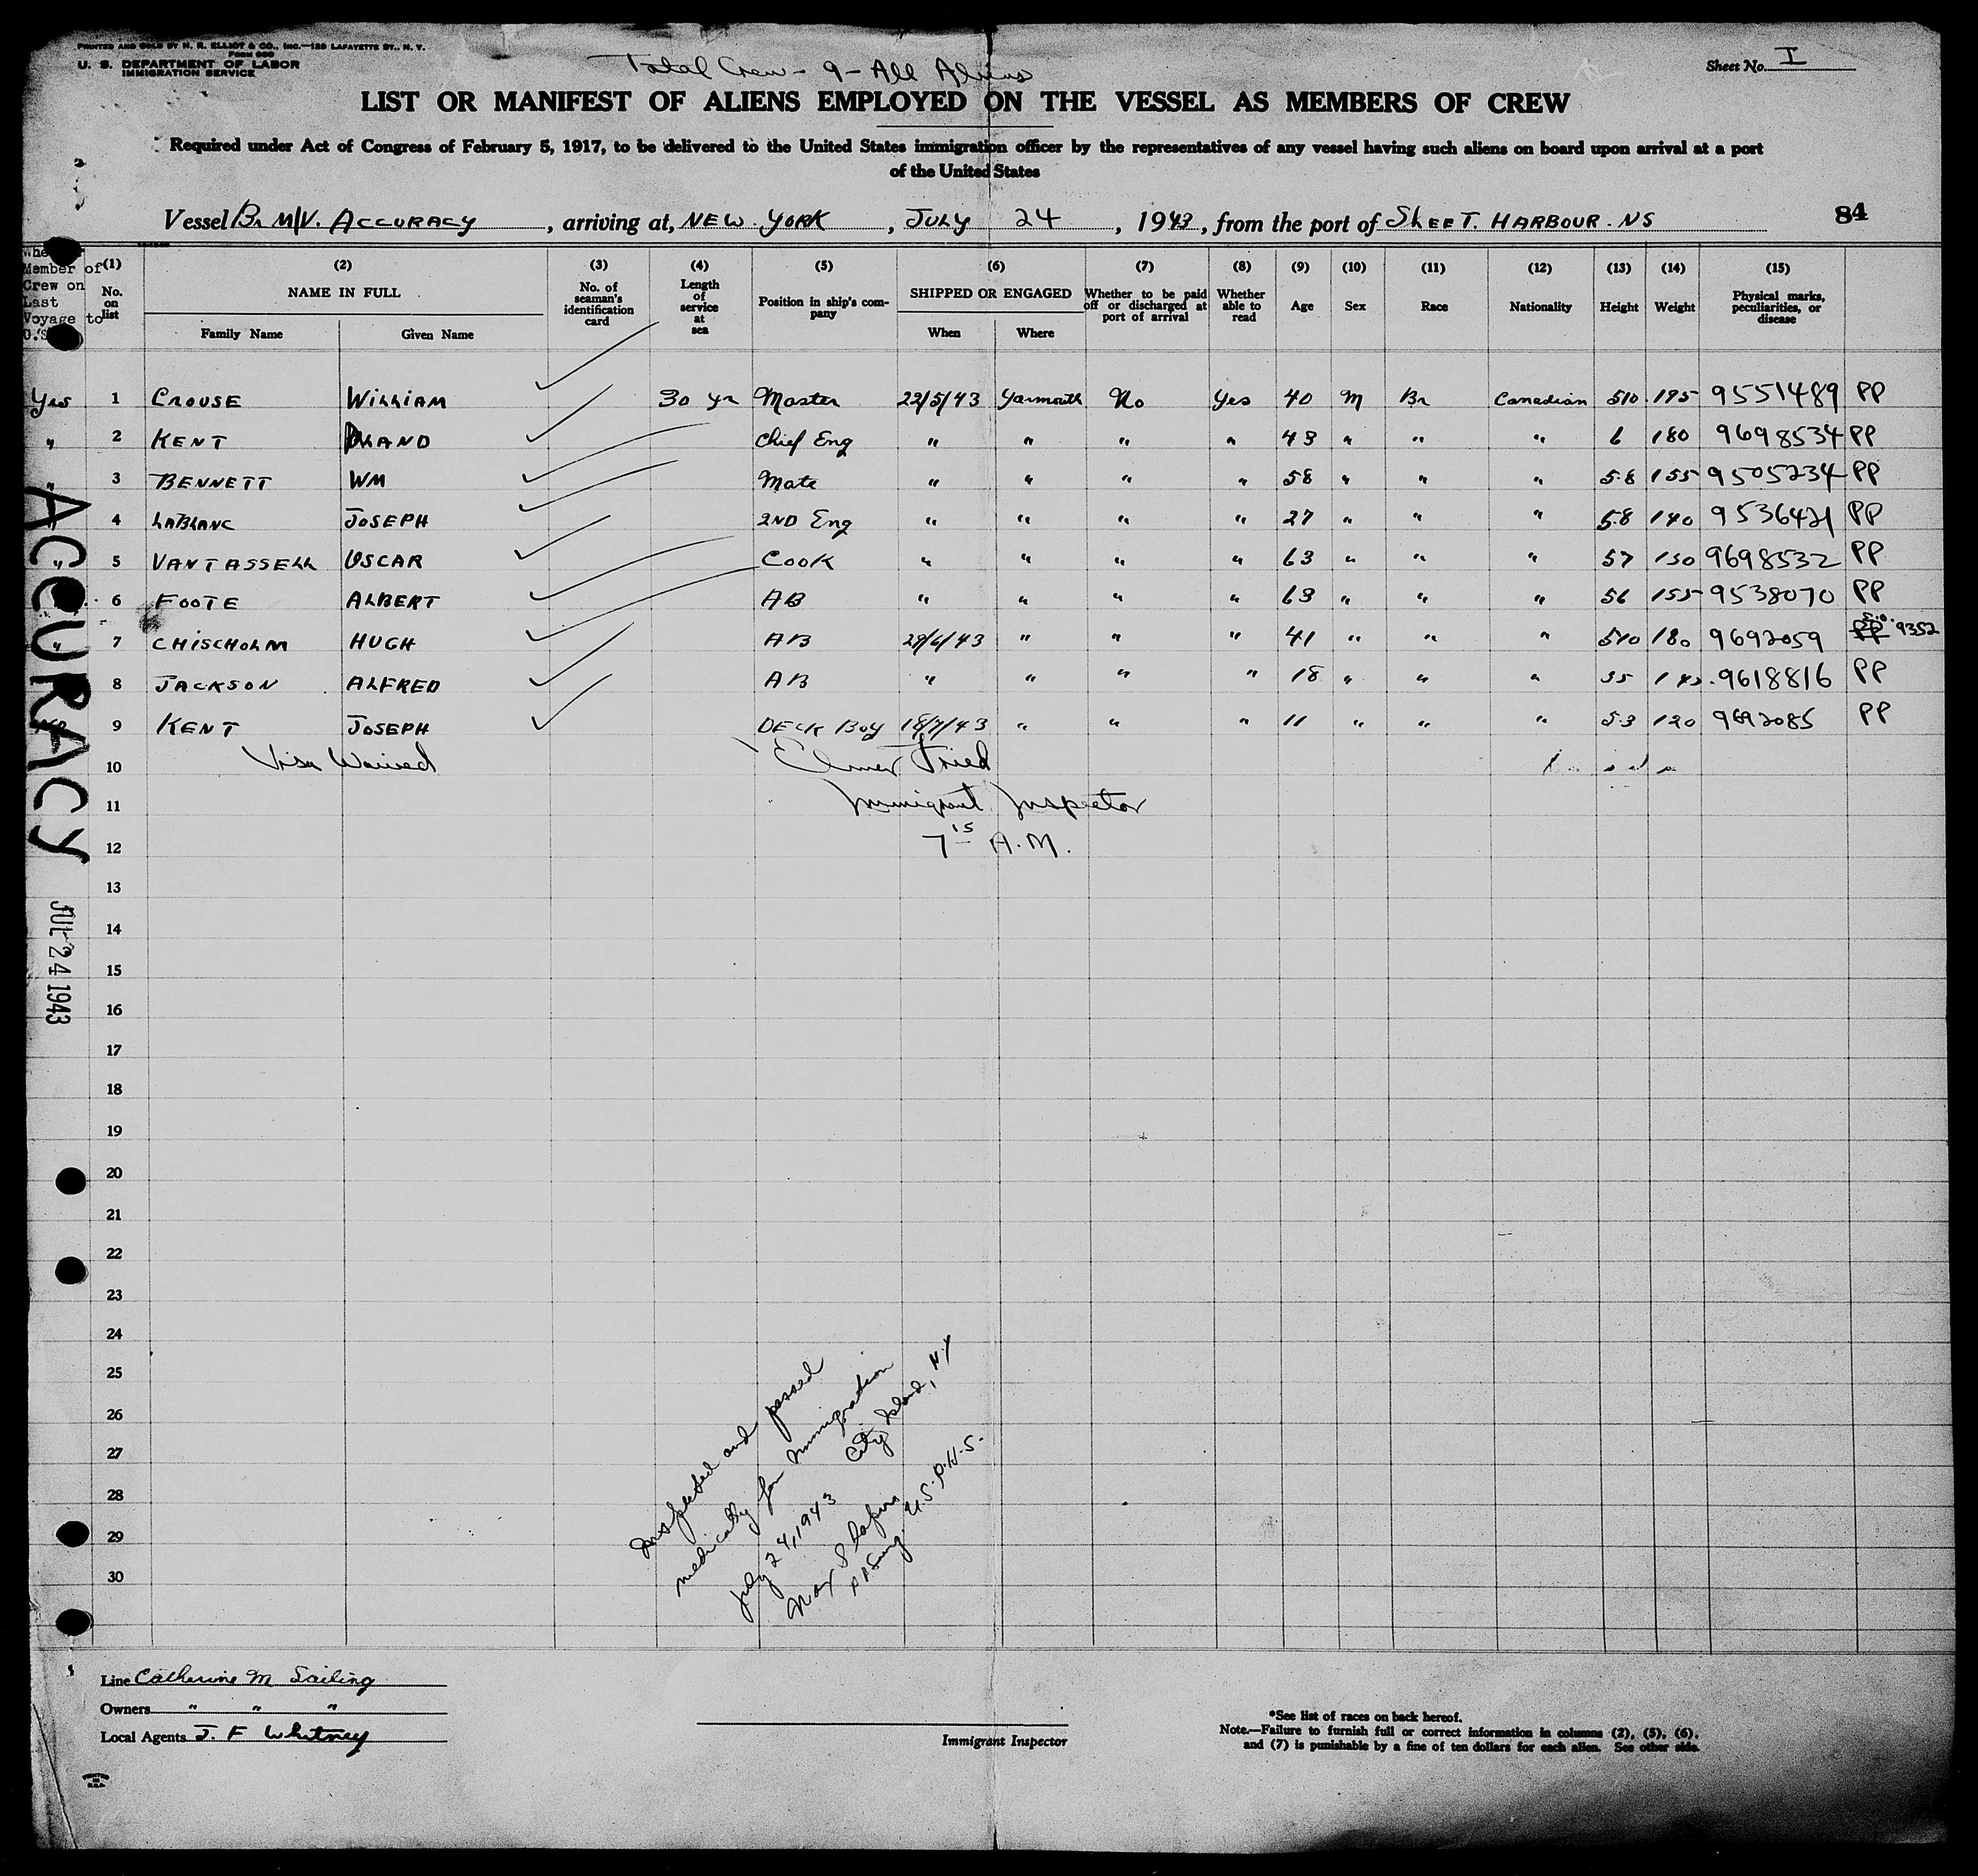 PRINTED AND SOLD BY H. R. ELLIOT & CO., INC.—129 LAFAYETTE ST., N. Y.
FORM 680
U. S. DEPARTMENT OF LABOR
IMMIGRATION SERVICE
Total Crew - 9 - All Aliens
Sheet No. I
LIST OR MANIFEST OF ALIENS EMPLOYED ON THE VESSEL AS MEMBERS OF CREW
Required under Act of Congress of February 5, 1917, to be delivered to the United States immigration officer by the representatives of any vessel having such aliens on board upon arrival at a port
of the United States
Vessel Br M/V. ACCURACY, arriving at, NEW YORK, JULY 24, 1943, from the port of SHEET. HARBOUR. NS 84
Member of Crew on Last Voyage to U.S. (1) No. on list (2) NAME IN FULL Family Name Given Name (3) No. of seaman's identification card (4) Length of service at sea (5) Position in ship's company (6) SHIPPED OR ENGAGED When Where (7) Whether to be paid off or discharged at port of arrival (8) Whether able to read (9) Age (10) Sex (11) Race (12) Nationality (13) Height (14) Weight (15) Physical marks, peculiarities, or disease
Yes 1 CROUSE WILLIAM 30 yr Master 22/5/43 Yarmouth No Yes 40 M Br Canadian 510 195 9551489 PP
" 2 KENT LAND Chief Eng " " " " 43 " " " 6 180 9698534 PP
" 3 BENNETT WM Mate " " " " 58 " " " 5.8 155 9505234 PP
4 LABLANC JOSEPH 2ND Eng " " " " 27 " " " 5.8 140 9536421 PP
" 5 VANTASSELL OSCAR COOK " " " " 63 " " " 57 150 9698532 PP
6 FOOTE ALBERT AB " " " " 63 " " " 56 155 9538070 PP
" 7 CHISCHOLM HUGH AB 29/6/43 " " " 41 " " " 510 180 9692059 PP 9352
8 JACKSON ALFRED AB " " " " 18 " " " 55 9618816 PP
9 KENT JOSEPH DECK BOY 18/7/43 " " " 11 " " " 53 120 9692085 PP
10 Visa Waived Elmer Fried
11 Immigrant Inspector
12 7 15 A.M.
13
14
15
16
17
18
19
20
21
22
23
24
25
26
27
28
29
30
ACCURACY
JUL 24 1943
Inspected and passed
medically for Immigration
July 24, 1943 City Island, NY
Max
P A Surg. U.S.P.H.S.
Line Catherine M Sailing
Owners " " "
Local Agents J. F Whitney
Immigrant Inspector
*See list of races on back hereof.
Note.—Failure to furnish full or correct information in columns (2), (5), (6),
and (7) is punishable by a fine of ten dollars for each alien. See other side.
PRINTED IN U.S.A.